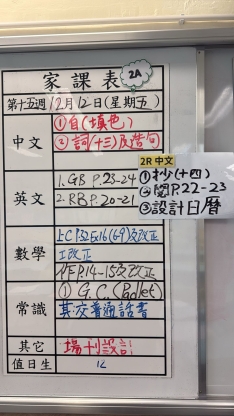 家課表
2A
第十五週 12月12日(星期五)
中文
①自(填色)
②詞(十三)及造句
2R 中文
①抄(十四)
②閱P.22-23
③設計日曆
英文
1. GB P.23-24
2. RB P.20-21
數學
工改正
P.14-15及改正
常識
① G.C.(Padlet)
其.交普通話書
其它
場刊設計
值日生
12